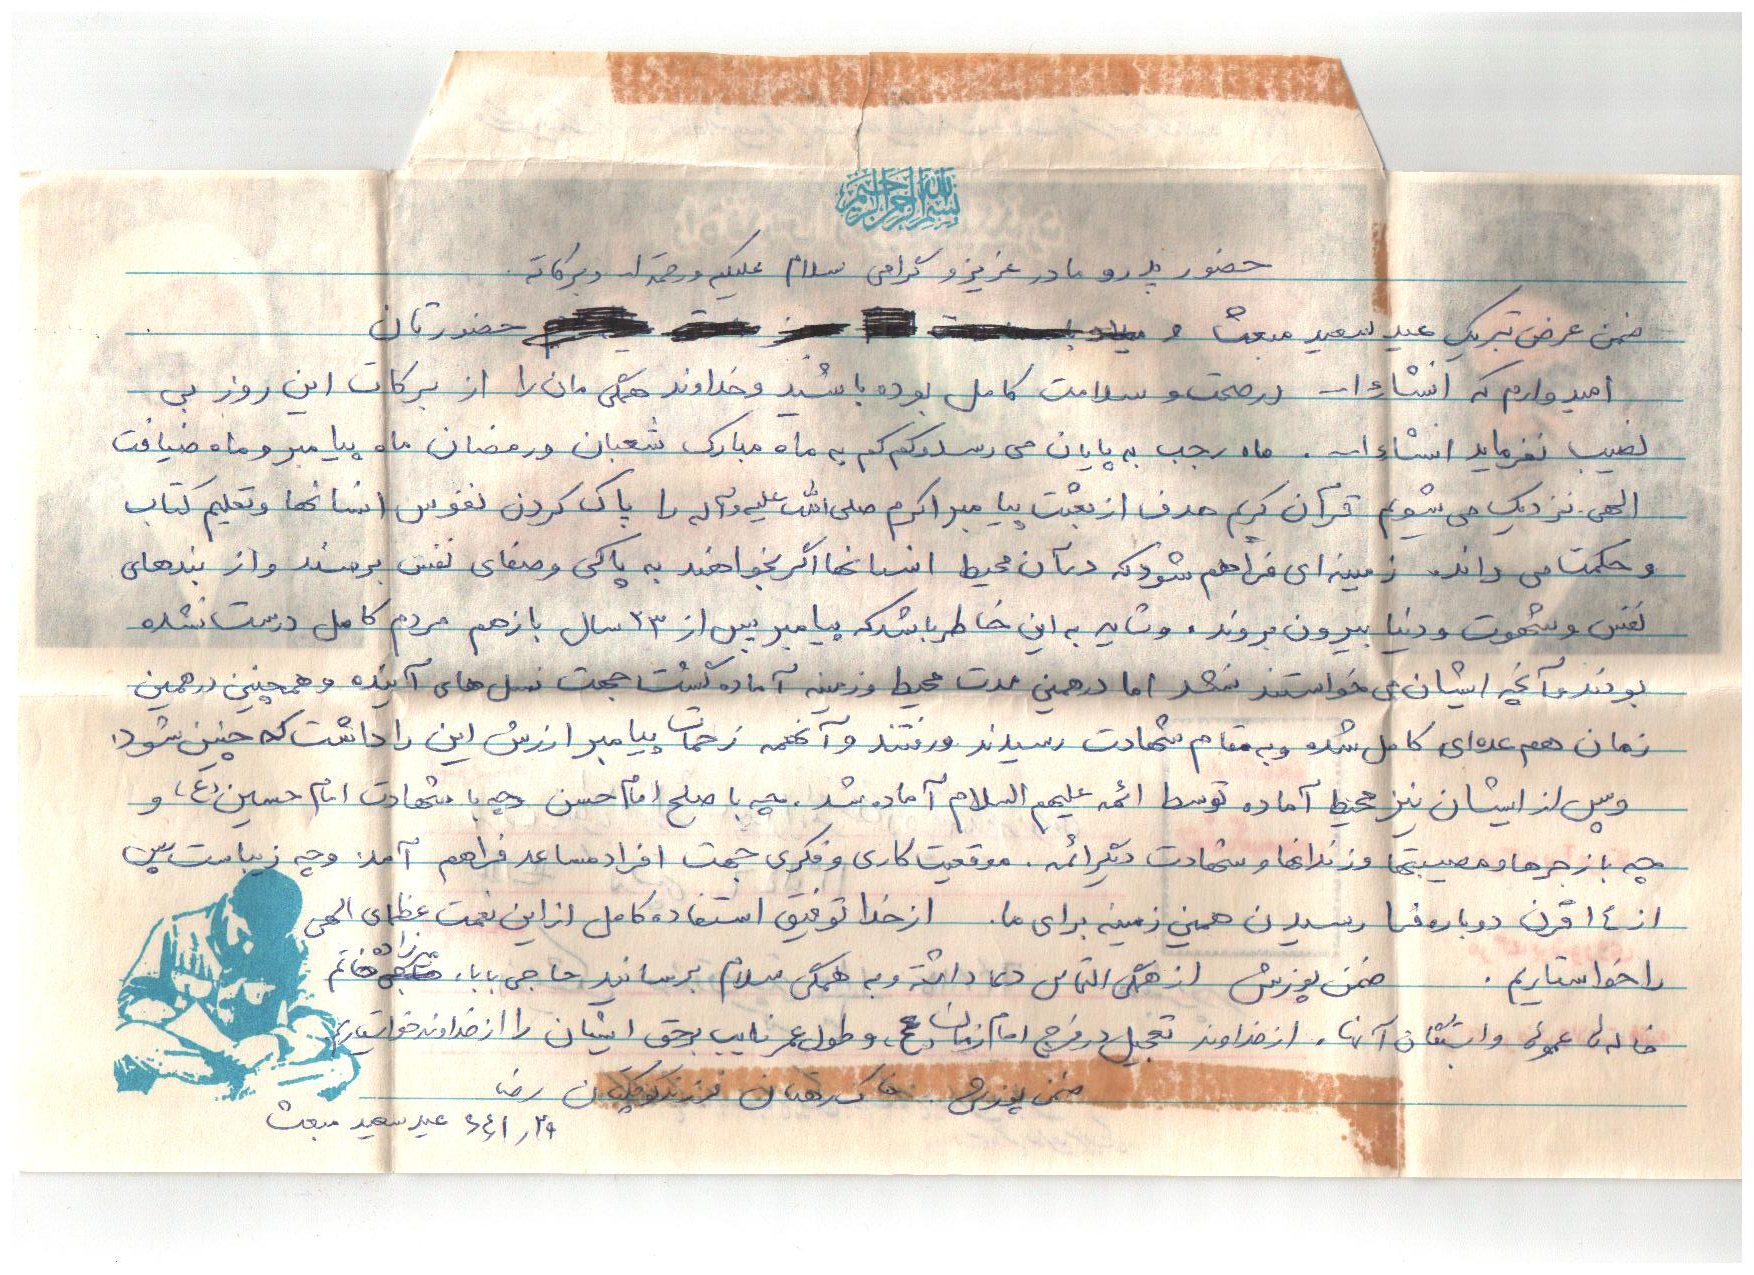 بسم الله الرحمن الرحیم
حضور پدر و مادر عزیز و گرامی سلام علیکم و رحمة ا... و برکاته.
ضمن عرض تبریک عید سعید مبعث و حضورتان
امیدوارم که انشاءا... در صحت و سلامت کامل بوده باشید و خداوند همگی مان را از برکات این روز بی
نصیب نفرماید انشاءا... . ماه رجب به پایان می رسد و کم کم به ماه مبارک شعبان و رمضان ماه پیامبر و ماه ضیافت
الهی نزدیک می شویم قرآن کریم هدف از بعثت پیامبر اکرم صلی الله علیه و آله را پاک کردن نفوس انسانها و تعلیم کتاب
و حکمت می داند. زمینه ای فراهم شود که در آن محیط انسانها اگر بخواهند به پاکی و صفای نفس برسند و از بندهای
نفس و شهوت و دنیا بیرون بروند. و شاید به این خاطر باشد که پیامبر پس از ۲۳ سال باز هم مردم کامل درست نشده
بودند و آنچه ایشان می خواستند نشد اما در همین مدت محیط و زمینه آماده گشت جهت نسل های آینده و همچنین در همین
زمان هم عده ای کامل شده و به مقام شهادت رسیدند و رفتند و آنهمه زحمات پیامبر ارزش این را داشت که چنین شود.
و پس از ایشان نیز محیط آماده توسط ائمه علیهم السلام آماده شد. چه با صلح امام حسن و چه با شهادت امام حسین (ع) و
چه با زجرها و مصیبتها و زندانها و شهادت دیگر ائمه. موقعیت کاری و فکری جهت افراد مساعد فراهم آمد. و چه زیباست پس
از ۱۴ قرن دوباره فرا رسیدن همین زمینه برای ما. از خدا توفیق استفاده کامل از این نعمت عظمای الهی
را خواستاریم. ضمن پوزش از همگی التماس دعا داشته و به همگی سلام برسانید حاجی بابا، خانم
خاله ها عموها و وابستگان آنها. از خداوند تعجیل در فرج امام زمان عج و طول عمر نایب برحق ایشان را از خداوند خواستاریم
ضمن پوزش خاک رهتان فرزند کوچکتان رضا
۶۴/۱/۲۹ عید سعید مبعث